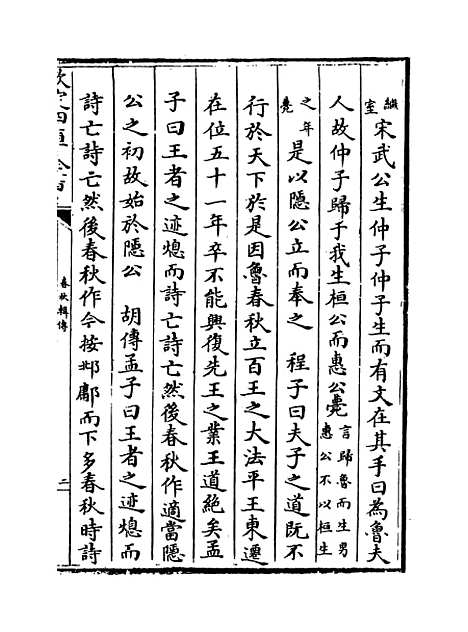 繼室宋武公生仲子仲子生而有文在其手曰為魯夫
人故仲子歸于我生桓公而惠公薨言歸魯而生男惠公不以桓生
之年薨是以隱公立而奉之　程子曰夫子之道既不
行於天下於是因魯春秋立百王之大法平王東遷
在位五十一年卒不能興復先王之業王道絶矣孟
子曰王者之迹熄而詩亡詩亡然後春秋作適當隱
公之初故始於隱公　胡傳孟子曰王者之迹熄而
詩亡詩亡然後春秋作今按邶鄘而下多春秋時詩
欽定四庫全書
春秋輯傳
二